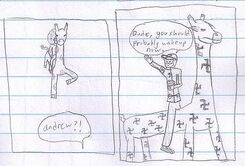 andrew?!
Dude, you should
probably wakeup
now.